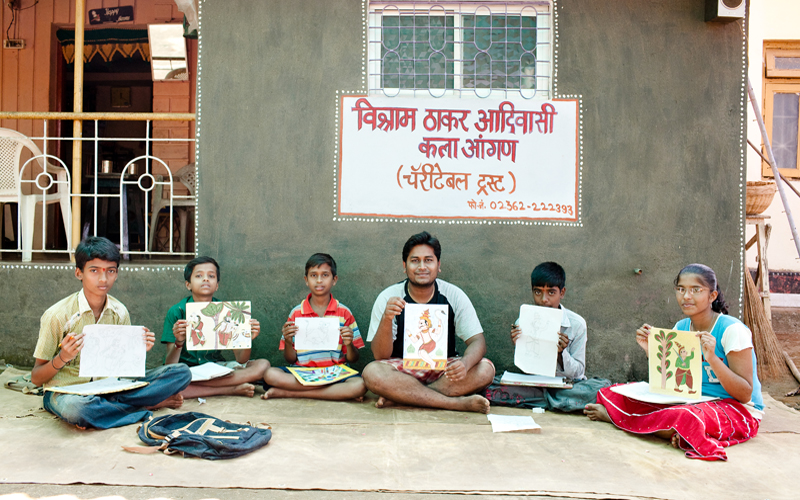 विश्राम ठाकर आदिवासी
कला आंगण
(चॅरीटेबल ट्रस्ट)
फो.नं. 02362-222393